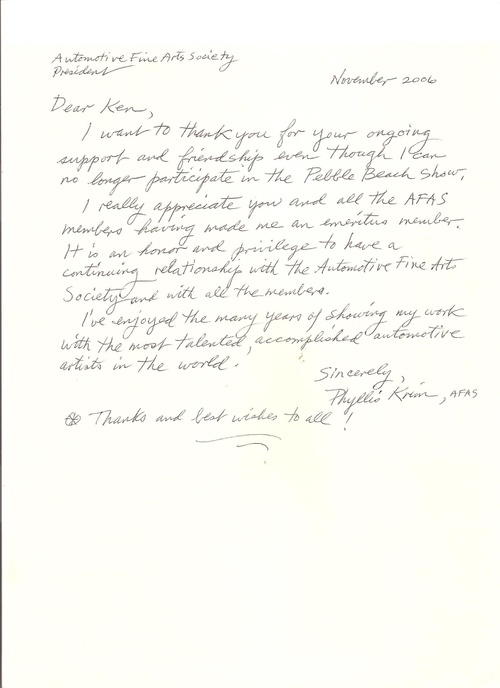 Automotive Fine Arts Society
President
November 2006
Dear Ken,
I want to thank you for your ongoing
support and friendship even though I can
no longer participate in the Pebble Beach Show.
I really appreciate you and all the AFAS
members having made me an emeritus member.
It is an honor and privilege to have a
continuing relationship with the Automotive Fine Arts
Society and with all the members.
I've enjoyed the many years of showing my work
with the most talented, accomplished automotive
artists in the world.
Sincerely,
Phyllis Krim, AFAS
Thanks and best wishes to all!